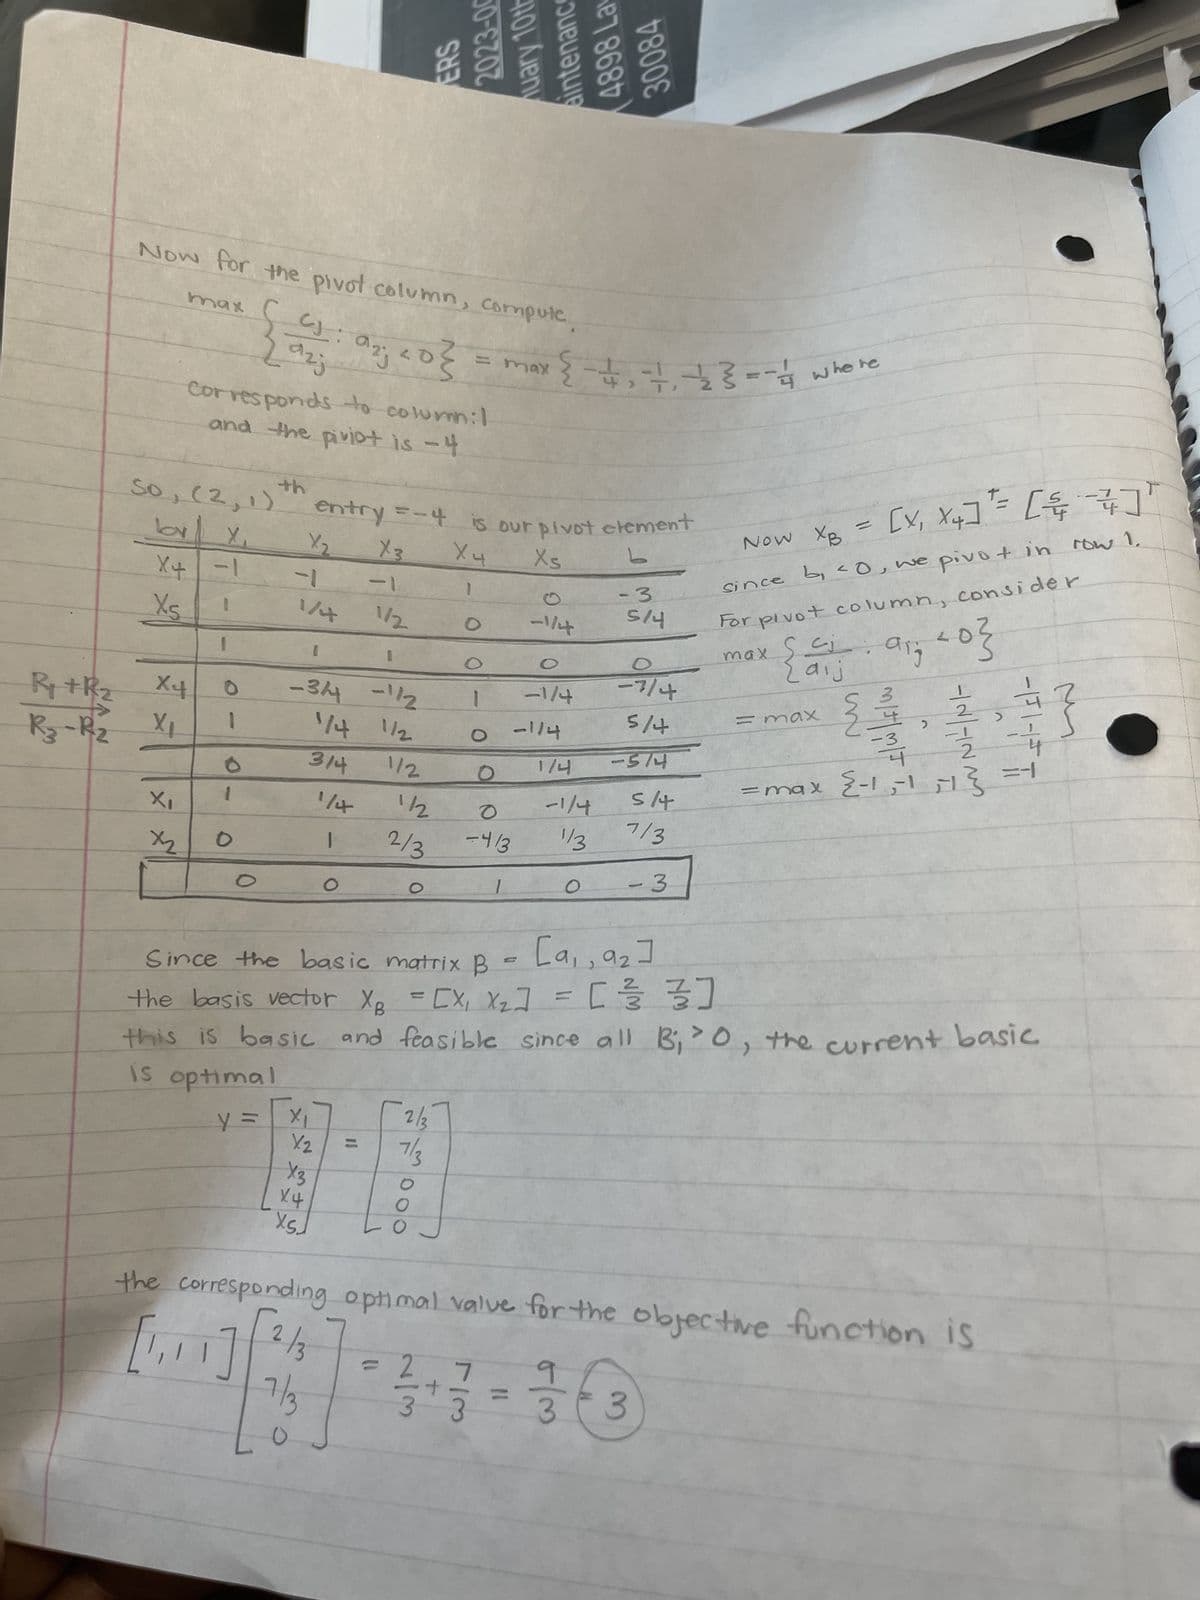 ERS
2023-00
uary 10th
aintenance
4898 Law
30084
Now for the pivot column, compute.
max { cj / a2j : a2j < 0 } = max { -1/4, -1/1, -1/2 } = -1/4 where
corresponds to column:1
and the piviot is -4
so, (2,1)th entry = -4 is our pivot element
bv x1 x2 x3 x4 x5 b
x4 -1 -1 -1 1 0 -3
x5 1 1/4 1/2 0 -1/4 5/4
1 1 1 0 0 0
R1+R2 x4 0 -3/4 -1/2 1 -1/4 -7/4
R3-R2 x1 1 1/4 1/2 0 -1/4 5/4
0 3/4 1/2 0 1/4 -5/4
x1 1 1/4 1/2 0 -1/4 5/4
x2 0 1 2/3 -4/3 1/3 7/3
0 0 0 1 0 -3
Now xB = [x1 x4]T = [5/4 -7/4]T
since b1 < 0, we pivot in row 1.
For pivot column, consider
max { cj / a1j : a1j < 0 }
= max { 3/4 / -3/4, 1/2 / -1/2, 1/4 / -1/4 }
= max {-1, -1, -1} = -1
Since the basic matrix B = [a1, a2]
the basis vector XB = [x1 x2] = [2/3 7/3]
this is basic and feasible since all Bi > 0, the current basic
is optimal
y = [x1 x2 x3 x4 x5] = [2/3 7/3 0 0 0]
the corresponding optimal value for the objective function is
[1, 1 1] [2/3 7/3 0] = 2/3 + 7/3 = 9/3 = 3